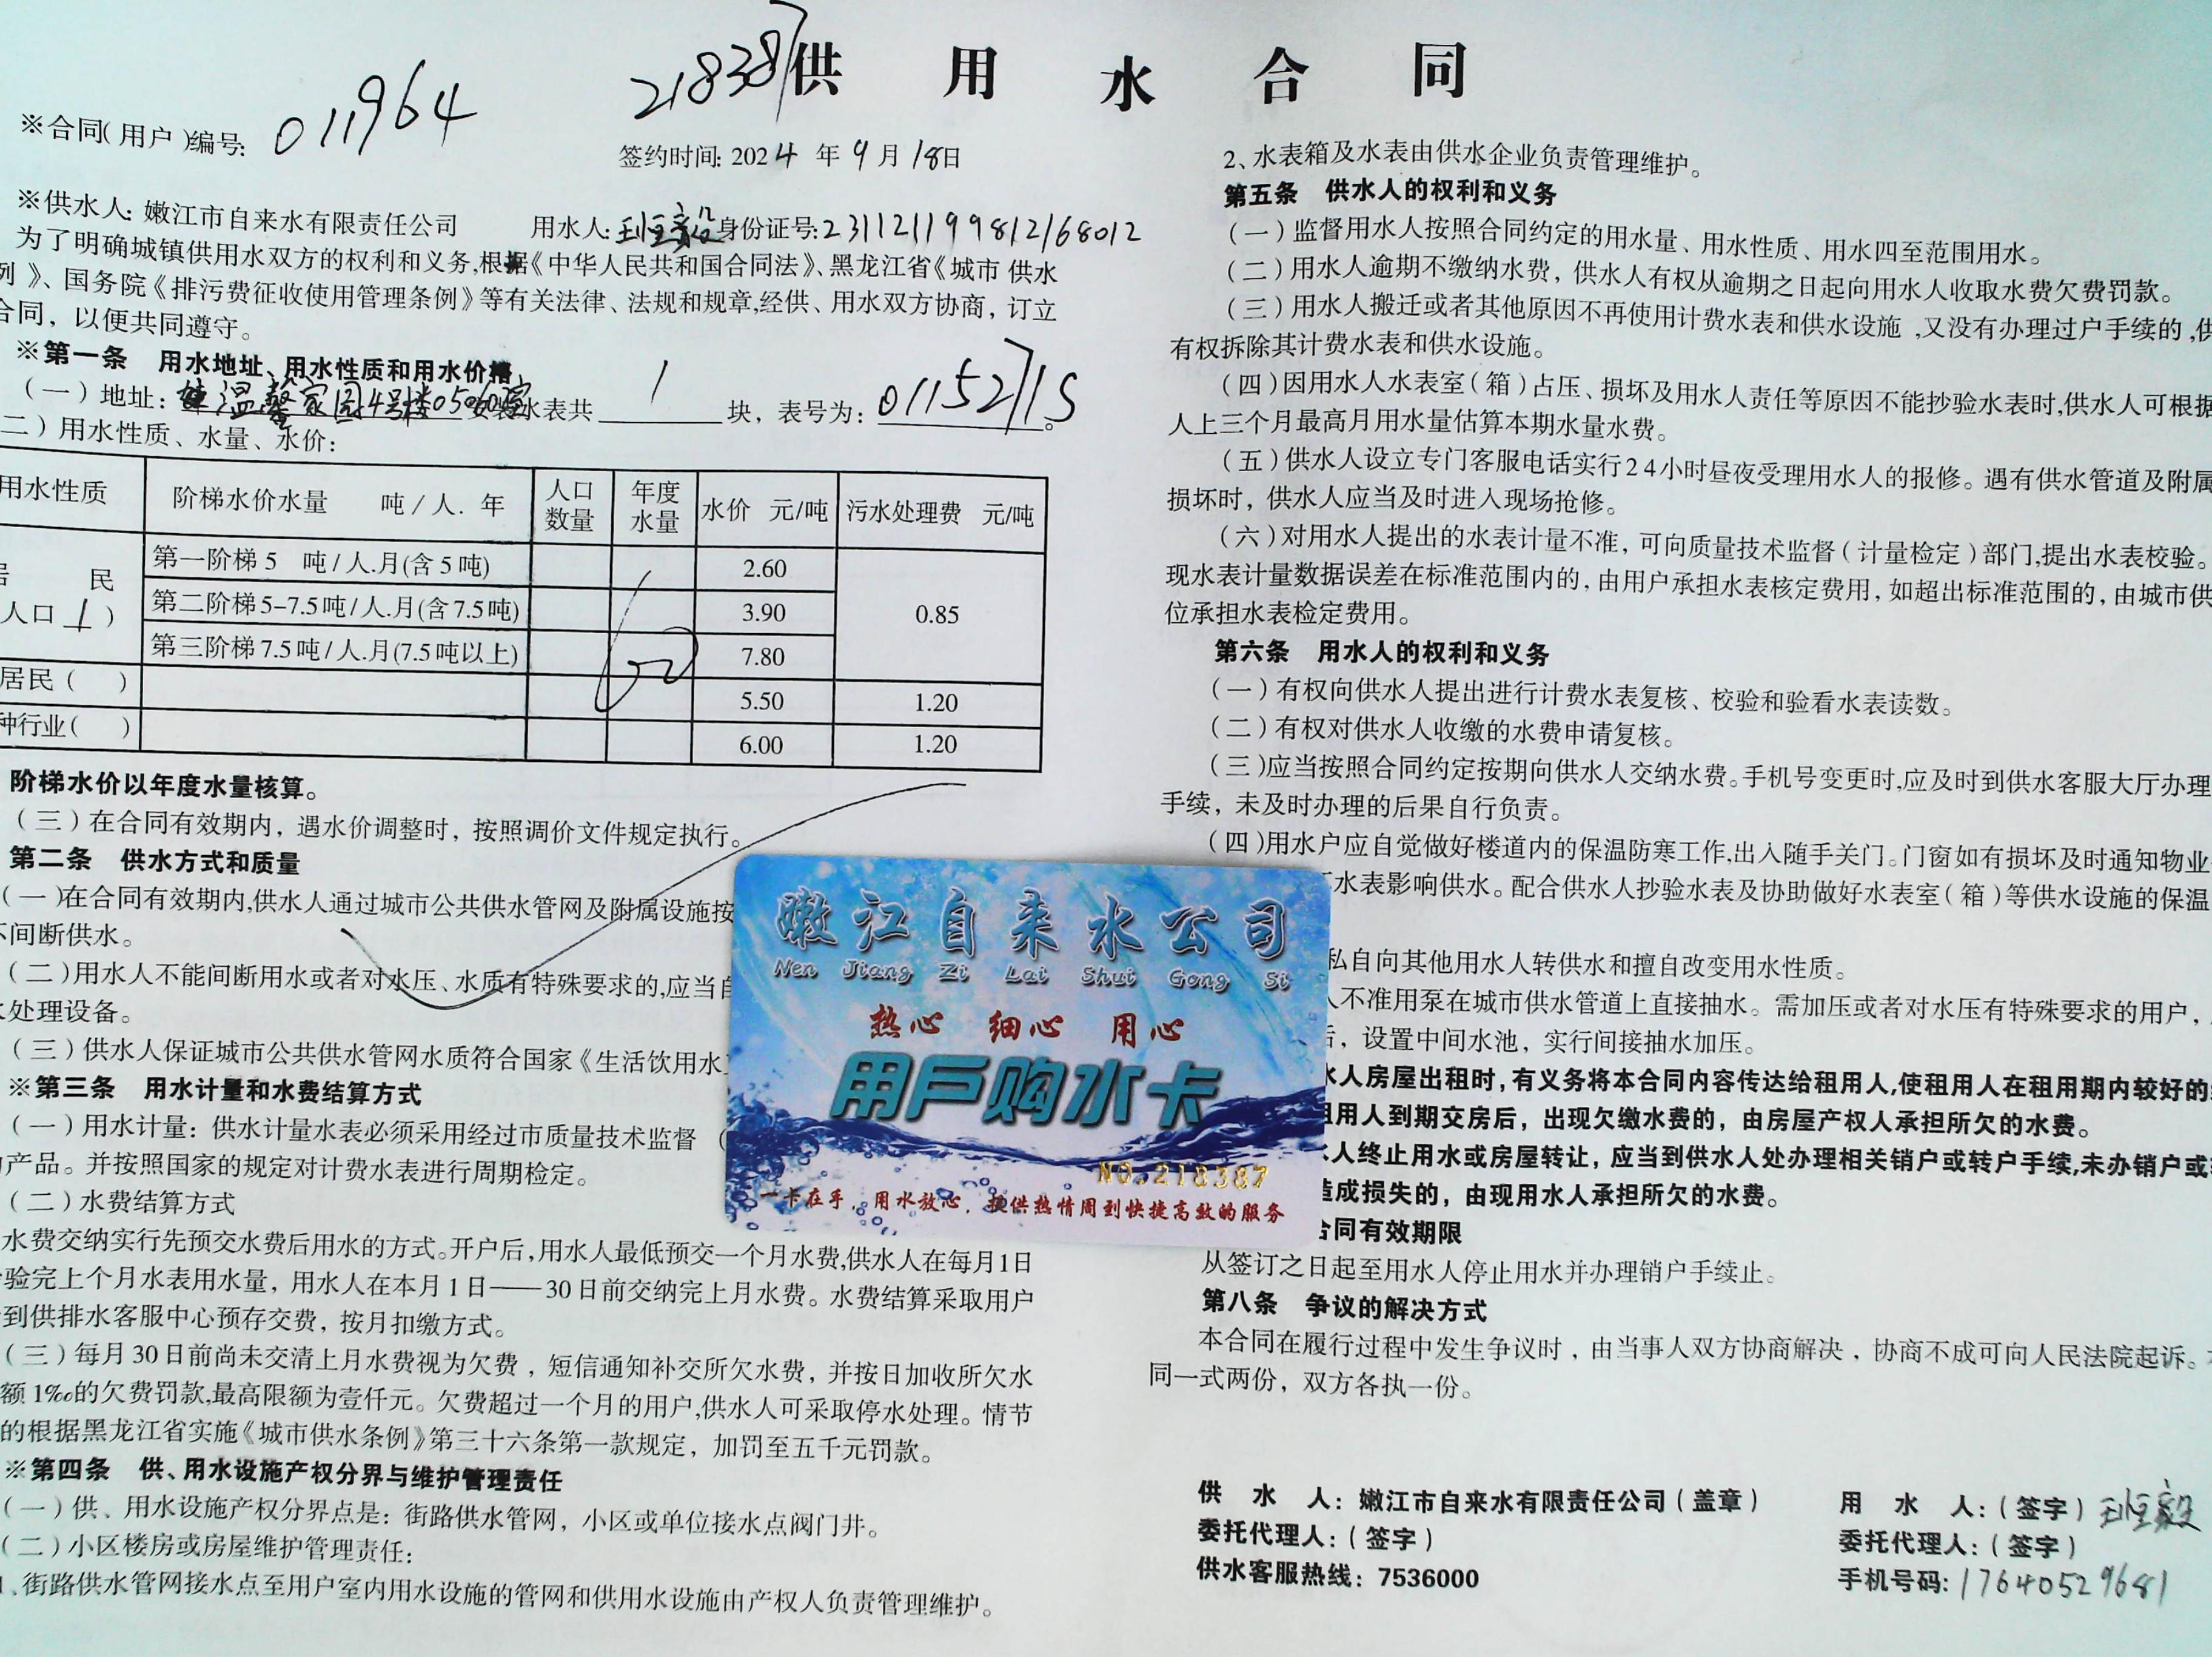 供 用 水 合 同
218387
※合同(用户)编号: 011964
签约时间: 2024 年 9 月 18日
※供水人: 嫩江市自来水有限责任公司 用水人: 身份证号: 231121199812168012
为了明确城镇供用水双方的权利和义务,根据《中华人民共和国合同法》、黑龙江省《城市 供水
例》、国务院《排污费征收使用管理条例》等有关法律、法规和规章,经供、用水双方协商，订立
合同，以便共同遵守。
※第一条 用水地址、用水性质和用水价格
(一)地址: 温馨家园4号楼 水表共 1 块，表号为: 01152715。
二)用水性质、水量、水价:
用水性质 阶梯水价水量 吨/人.年 人口数量 年度水量 水价 元/吨 污水处理费 元/吨
民
人口 1 )
第一阶梯 5 吨/人.月(含5吨) 2.60 0.85
第二阶梯5-7.5吨/人.月(含7.5吨) 3.90
第三阶梯7.5吨/人.月(7.5吨以上) 7.80
60
居民( ) 5.50 1.20
种行业( ) 6.00 1.20
阶梯水价以年度水量核算。
(三)在合同有效期内，遇水价调整时，按照调价文件规定执行。
第二条 供水方式和质量
(一)在合同有效期内,供水人通过城市公共供水管网及附属设施按
不间断供水。
(二)用水人不能间断用水或者对水压、水质有特殊要求的,应当自
水处理设备。
(三)供水人保证城市公共供水管网水质符合国家《生活饮用水
※第三条 用水计量和水费结算方式
(一)用水计量: 供水计量水表必须采用经过市质量技术监督 (
产品。并按照国家的规定对计费水表进行周期检定。
(二)水费结算方式
水费交纳实行先预交水费后用水的方式。开户后,用水人最低预交一个月水费,供水人在每月1日
验完上个月水表用水量，用水人在本月1日——30日前交纳完上月水费。水费结算采取用户
到供排水客服中心预存交费，按月扣缴方式。
(三)每月30日前尚未交清上月水费视为欠费，短信通知补交所欠水费，并按日加收所欠水
额1‰的欠费罚款,最高限额为壹仟元。欠费超过一个月的用户,供水人可采取停水处理。情节
的根据黑龙江省实施《城市供水条例》第三十六条第一款规定，加罚至五千元罚款。
※第四条 供、用水设施产权分界与维护管理责任
(一)供、用水设施产权分界点是: 街路供水管网，小区或单位接水点阀门井。
(二)小区楼房或房屋维护管理责任:
、街路供水管网接水点至用户室内用水设施的管网和供用水设施由产权人负责管理维护。
2、水表箱及水表由供水企业负责管理维护。
第五条 供水人的权利和义务
(一)监督用水人按照合同约定的用水量、用水性质、用水四至范围用水。
(二)用水人逾期不缴纳水费，供水人有权从逾期之日起向用水人收取水费欠费罚款。
(三)用水人搬迁或者其他原因不再使用计费水表和供水设施,又没有办理过户手续的,供
有权拆除其计费水表和供水设施。
(四)因用水人水表室(箱)占压、损坏及用水人责任等原因不能抄验水表时,供水人可根据
人上三个月最高月用水量估算本期水量水费。
(五)供水人设立专门客服电话实行24小时昼夜受理用水人的报修。遇有供水管道及附属
损坏时，供水人应当及时进入现场抢修。
(六)对用水人提出的水表计量不准，可向质量技术监督(计量检定)部门,提出水表校验。
现水表计量数据误差在标准范围内的，由用户承担水表核定费用，如超出标准范围的，由城市供
位承担水表检定费用。
第六条 用水人的权利和义务
(一)有权向供水人提出进行计费水表复核、校验和验看水表读数。
(二)有权对供水人收缴的水费申请复核。
(三)应当按照合同约定按期向供水人交纳水费。手机号变更时,应及时到供水客服大厅办理
手续，未及时办理的后果自行负责。
(四)用水户应自觉做好楼道内的保温防寒工作,出入随手关门。门窗如有损坏及时通知物业
水表影响供水。配合供水人抄验水表及协助做好水表室(箱)等供水设施的保温
私自向其他用水人转供水和擅自改变用水性质。
人不准用泵在城市供水管道上直接抽水。需加压或者对水压有特殊要求的用户，
后，设置中间水池，实行间接抽水加压。
水人房屋出租时,有义务将本合同内容传达给租用人,使租用人在租用期内较好的
租用人到期交房后，出现欠缴水费的，由房屋产权人承担所欠的水费。
人终止用水或房屋转让，应当到供水人处办理相关销户或转户手续,未办销户或
造成损失的，由现用水人承担所欠的水费。
合同有效期限
从签订之日起至用水人停止用水并办理销户手续止。
第八条 争议的解决方式
本合同在履行过程中发生争议时，由当事人双方协商解决，协商不成可向人民法院起诉。
同一式两份，双方各执一份。
供 水 人: 嫩江市自来水有限责任公司(盖章)
委托代理人: (签字)
供水客服热线: 7536000
用 水 人: (签字)
委托代理人: (签字)
手机号码: 17640529681
嫩江自来水公司
Nen Jiang Zi Lai Shui Gong Si
热心 细心 用心
用户购水卡
NO.218387
一卡在手，用水放心，提供热情周到快捷高效的服务